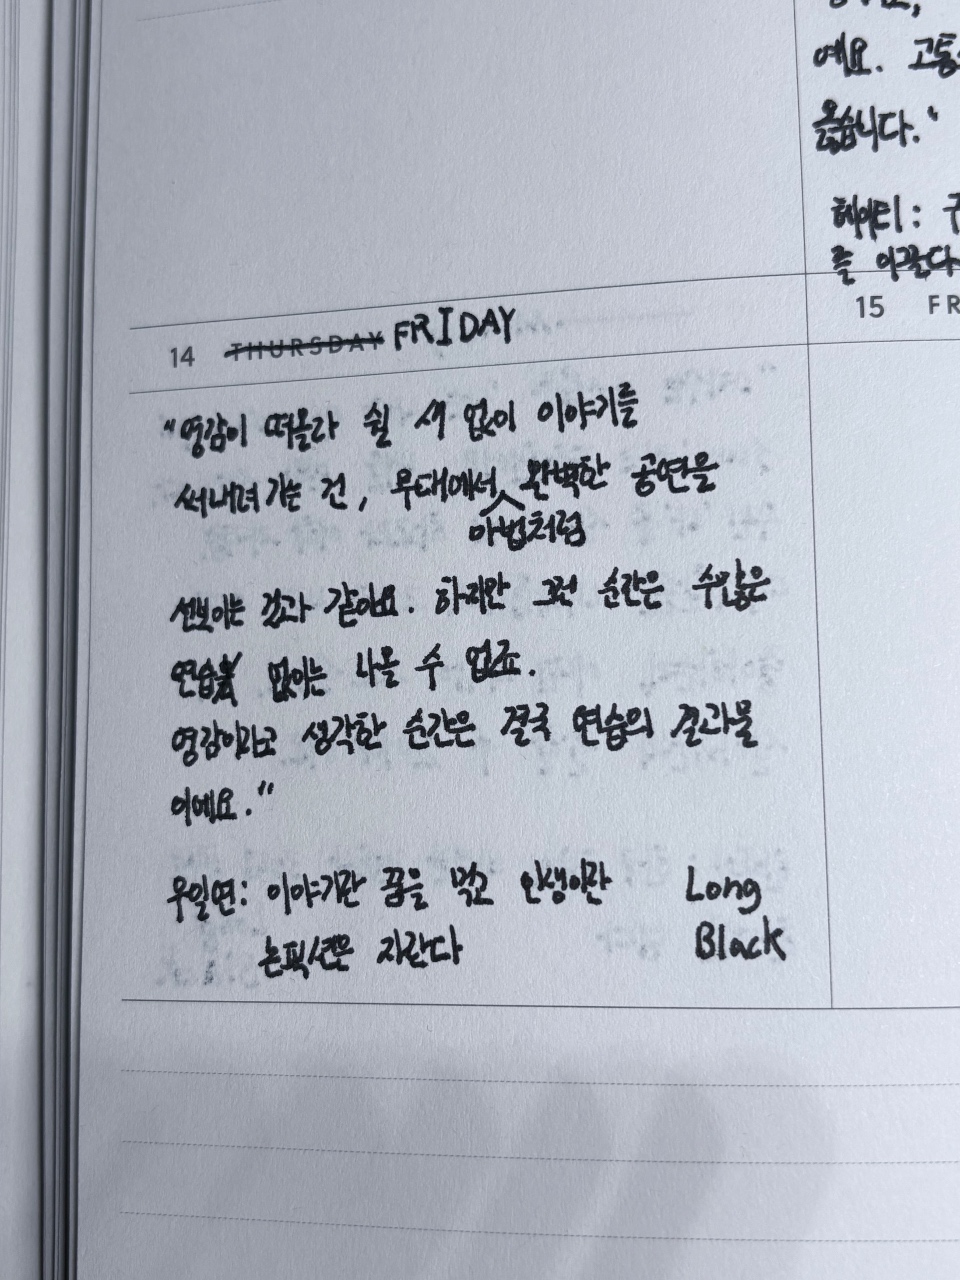 예요. 고통
옳습니다."
헤이티:
를 이끌다
14 THURSDAY FRIDAY
15 FR
"영감이 떠올라 쉴 새 없이 이야기를
써내려가는 건, 무대에서 완벽한 공연을
마법처럼
선보이는 것과 같아요. 하지만 그런 순간은 수많은
연습 없이는 나올 수 없죠.
영감이라고 생각한 순간은 결국 연습의 결과물
이에요."
우일연: 이야기란 꿈을 먹고 인생이란 Long
논픽션은 자란다 Black